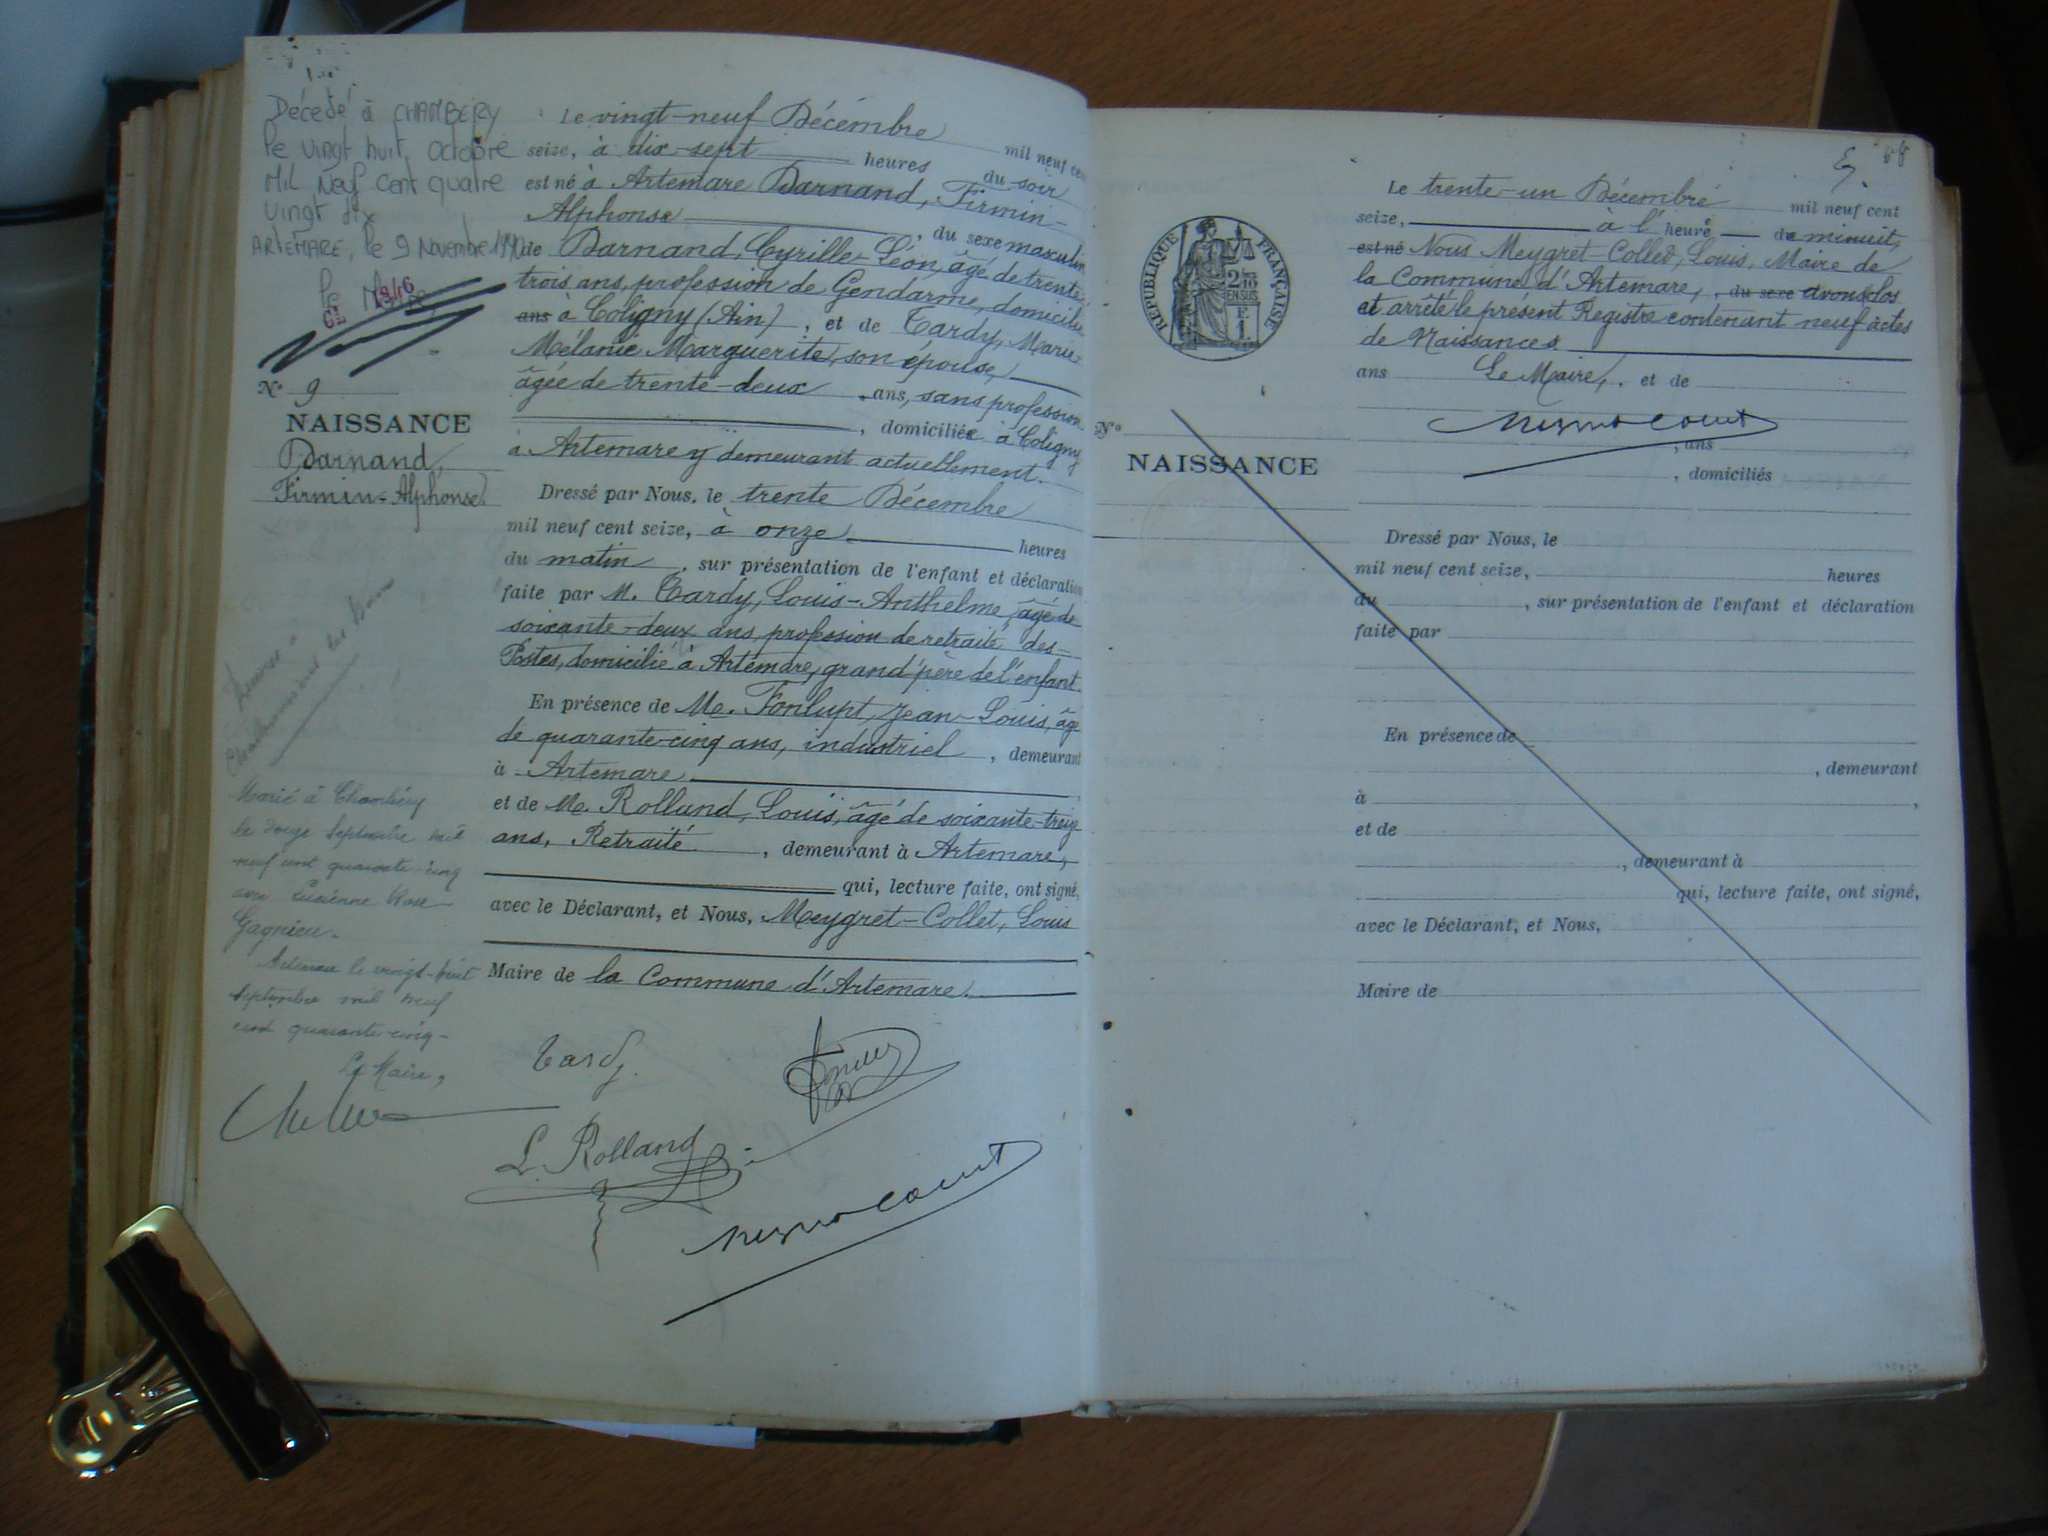 Décédé à CHAMBERY
le vingt huit octobre
Mil Neuf Cent quatre
vingt dix
ARTEMARE, le 9 Novembre 1990
N° 9
NAISSANCE
Darnand,
Firmin-Alphonse
Marié à Chambéry
le douze Septembre mil
neuf cent quarante-cinq
avec Lucienne Rose
Gagnieu.
Artemare le vingt-huit
septembre mil neuf
cent quarante-cinq-
Le Maire,
Le vingt-neuf Décembre mil neuf cent
seize, à dix-sept heures du soir
est né à Artemare Darnand, Firmin-
Alphonse, du sexe masculin
de Darnand, Cyrille-Léon, âgé de trente-
trois ans, profession de Gendarme, domicilié
ans à Coligny (Ain), et de Tardy, Marie-
Mélanie Marguerite, son épouse,
âgée de trente-deux ans, sans profession
, domiciliée à Coligny
à Artemare y demeurant actuellement.
Dressé par Nous, le trente Décembre
mil neuf cent seize, à onze heures
du matin, sur présentation de l'enfant et déclaration
faite par M. Tardy, Louis-Anthelme, âgé de
soixante-deux ans, profession de retraité des-
Postes, domicilié à Artemare, grand'père de l'enfant.
En présence de Me. Fonlupt, Jean-Louis, âgé
de quarante-cinq ans, industriel, demeurant
à Artemare
et de Me. Rolland, Louis, âgé de soixante-treize
ans, Retraité, demeurant à Artemare,
qui, lecture faite, ont signé,
avec le Déclarant, et Nous, Meygret-Collet, Louis
Maire de la Commune d'Artemare.
Tardy.
L. Rolland
68
RÉPUBLIQUE FRANÇAISE
2/10
EN SUS
F.
1.
N°
NAISSANCE
Le trente-un Décembre mil neuf cent
seize, à l'heure de minuit,
est né Nous Meygret-Collet, Louis, Maire de
la Commune d'Artemare, du sexe avons clos
et arrêté le présent Registre contenant neuf actes
de Naissances
ans Le Maire, et de
, ans
, domiciliés
Dressé par Nous, le
mil neuf cent seize, heures
du , sur présentation de l'enfant et déclaration
faite par
En présence de
, demeurant
à ,
et de
, demeurant à
qui, lecture faite, ont signé,
avec le Déclarant, et Nous,
Maire de